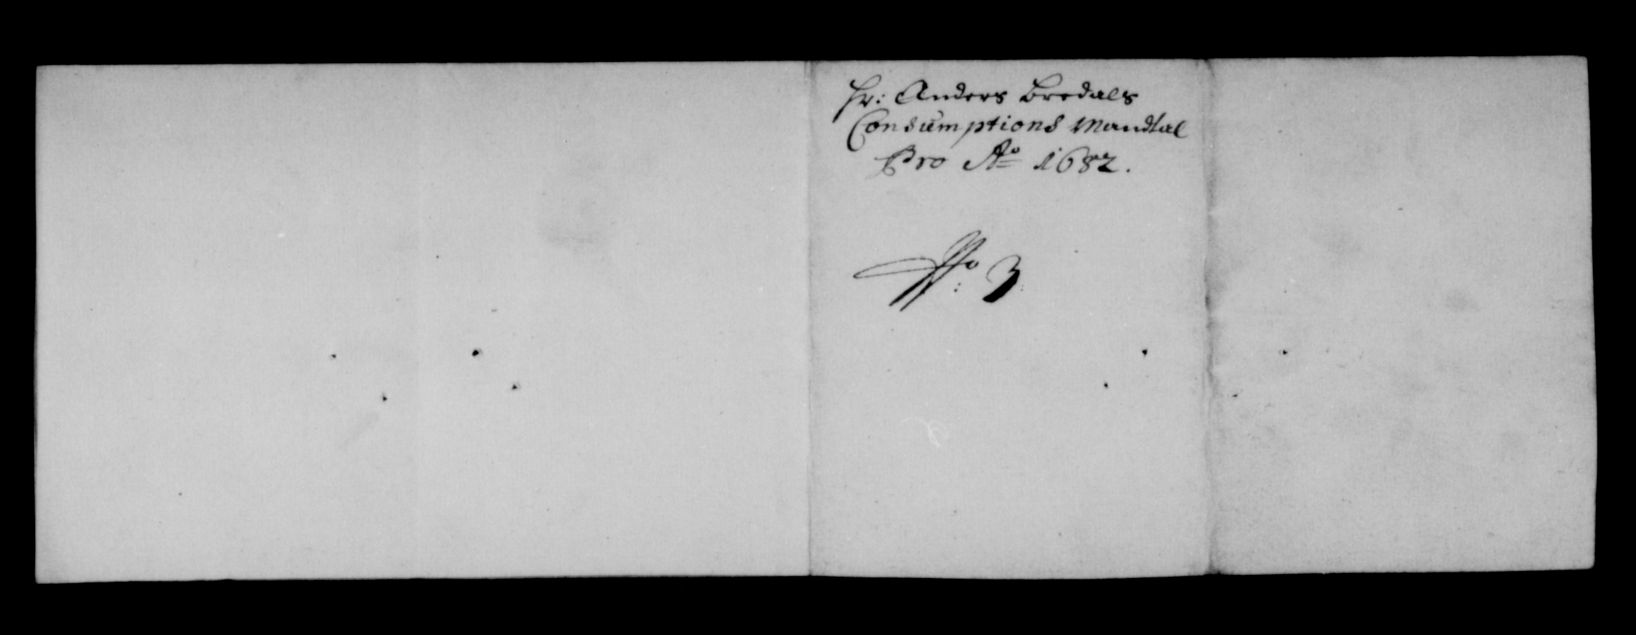 Hr: Anders Bredals
Consumptions Mandtal
Pro Ao 1682.
No: 3